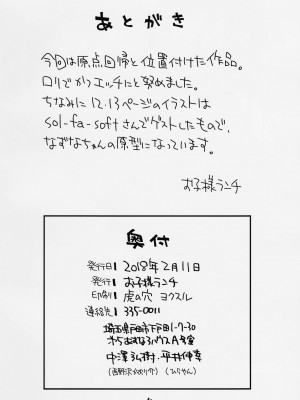 あとがき
今回は原点回帰と位置付けた作品。
ロリでかつエッチにと努めました。
ちなみに12.13ページのイラストは
sol-fa-softさんでゲストしたもので、
なずなちゃんの原型になっています。
お子様ランチ
奥付
発行日 2018年2月11日
発行 お子様ランチ
印刷 虎の穴 ヨクスル
連絡先 335-0011
埼玉県戸田市下戸田1-7-30
ハウスA号室
中澤 樹・平井伸幸
(ひらやん)